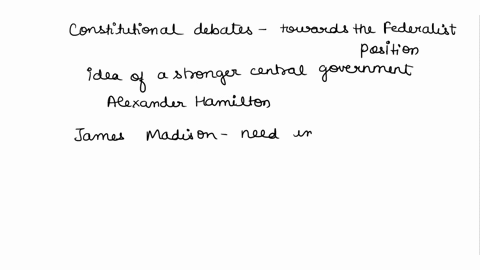 Constitutional debates - towards the Federalist
position
idea of a stronger central government
Alexander Hamilton
James Madison - need in